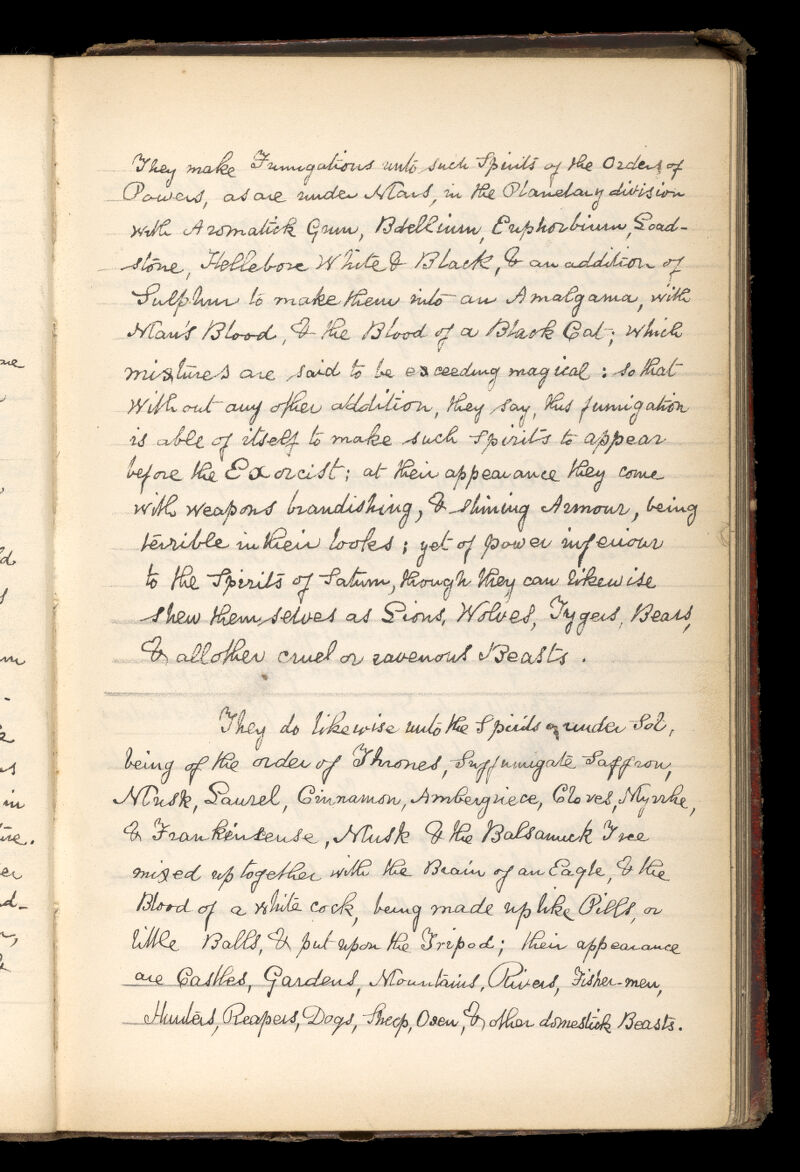 They make Fumigations unto such Spirits of the Order of
Powers, as are under Mars, in the Planetary division
with Aromatick Gum, Bdellium, Euphorbium, Load-
stone, Hellebore White & Black, & an addition of
Sulphur to make them into an Amalgama, with
Man's Blood, & the Blood of a Black Cat; which
mixtures are said to be exceeding magical: so that
without any other addition, they say, this fumigation
is able of itself to make such Spirits to appear
before the Exorcist; at their appearance they come
with weapons brandishing, & shining Armour, being
terrible in their looks; yet of power inferiour
to the Spirits of Saturn, though they can likewise
shew themselves as Lions, Wolves, Tygers, Bears,
& all other cruel or ravenous Beasts.
They do likewise unto the Spirits under Sol,
being of the order of Thrones, suffumigate Saffron,
Musk, Laurel, Cinnamon, Ambergriece, Cloves, Myrrhe,
& Frankinsense, Musk & the Balsamick Tree
mixed up together with the Brain of an Eagle, & the
Blood of a white cock, being made up like Pills, or
little Balls, & put upon the Tripod; their appearance
are Castles, Gardens, Mountains, Rivers, Fisher-men,
Hunters, Reapers, Dogs, Sheep, Oxen, & other domestick Beasts.